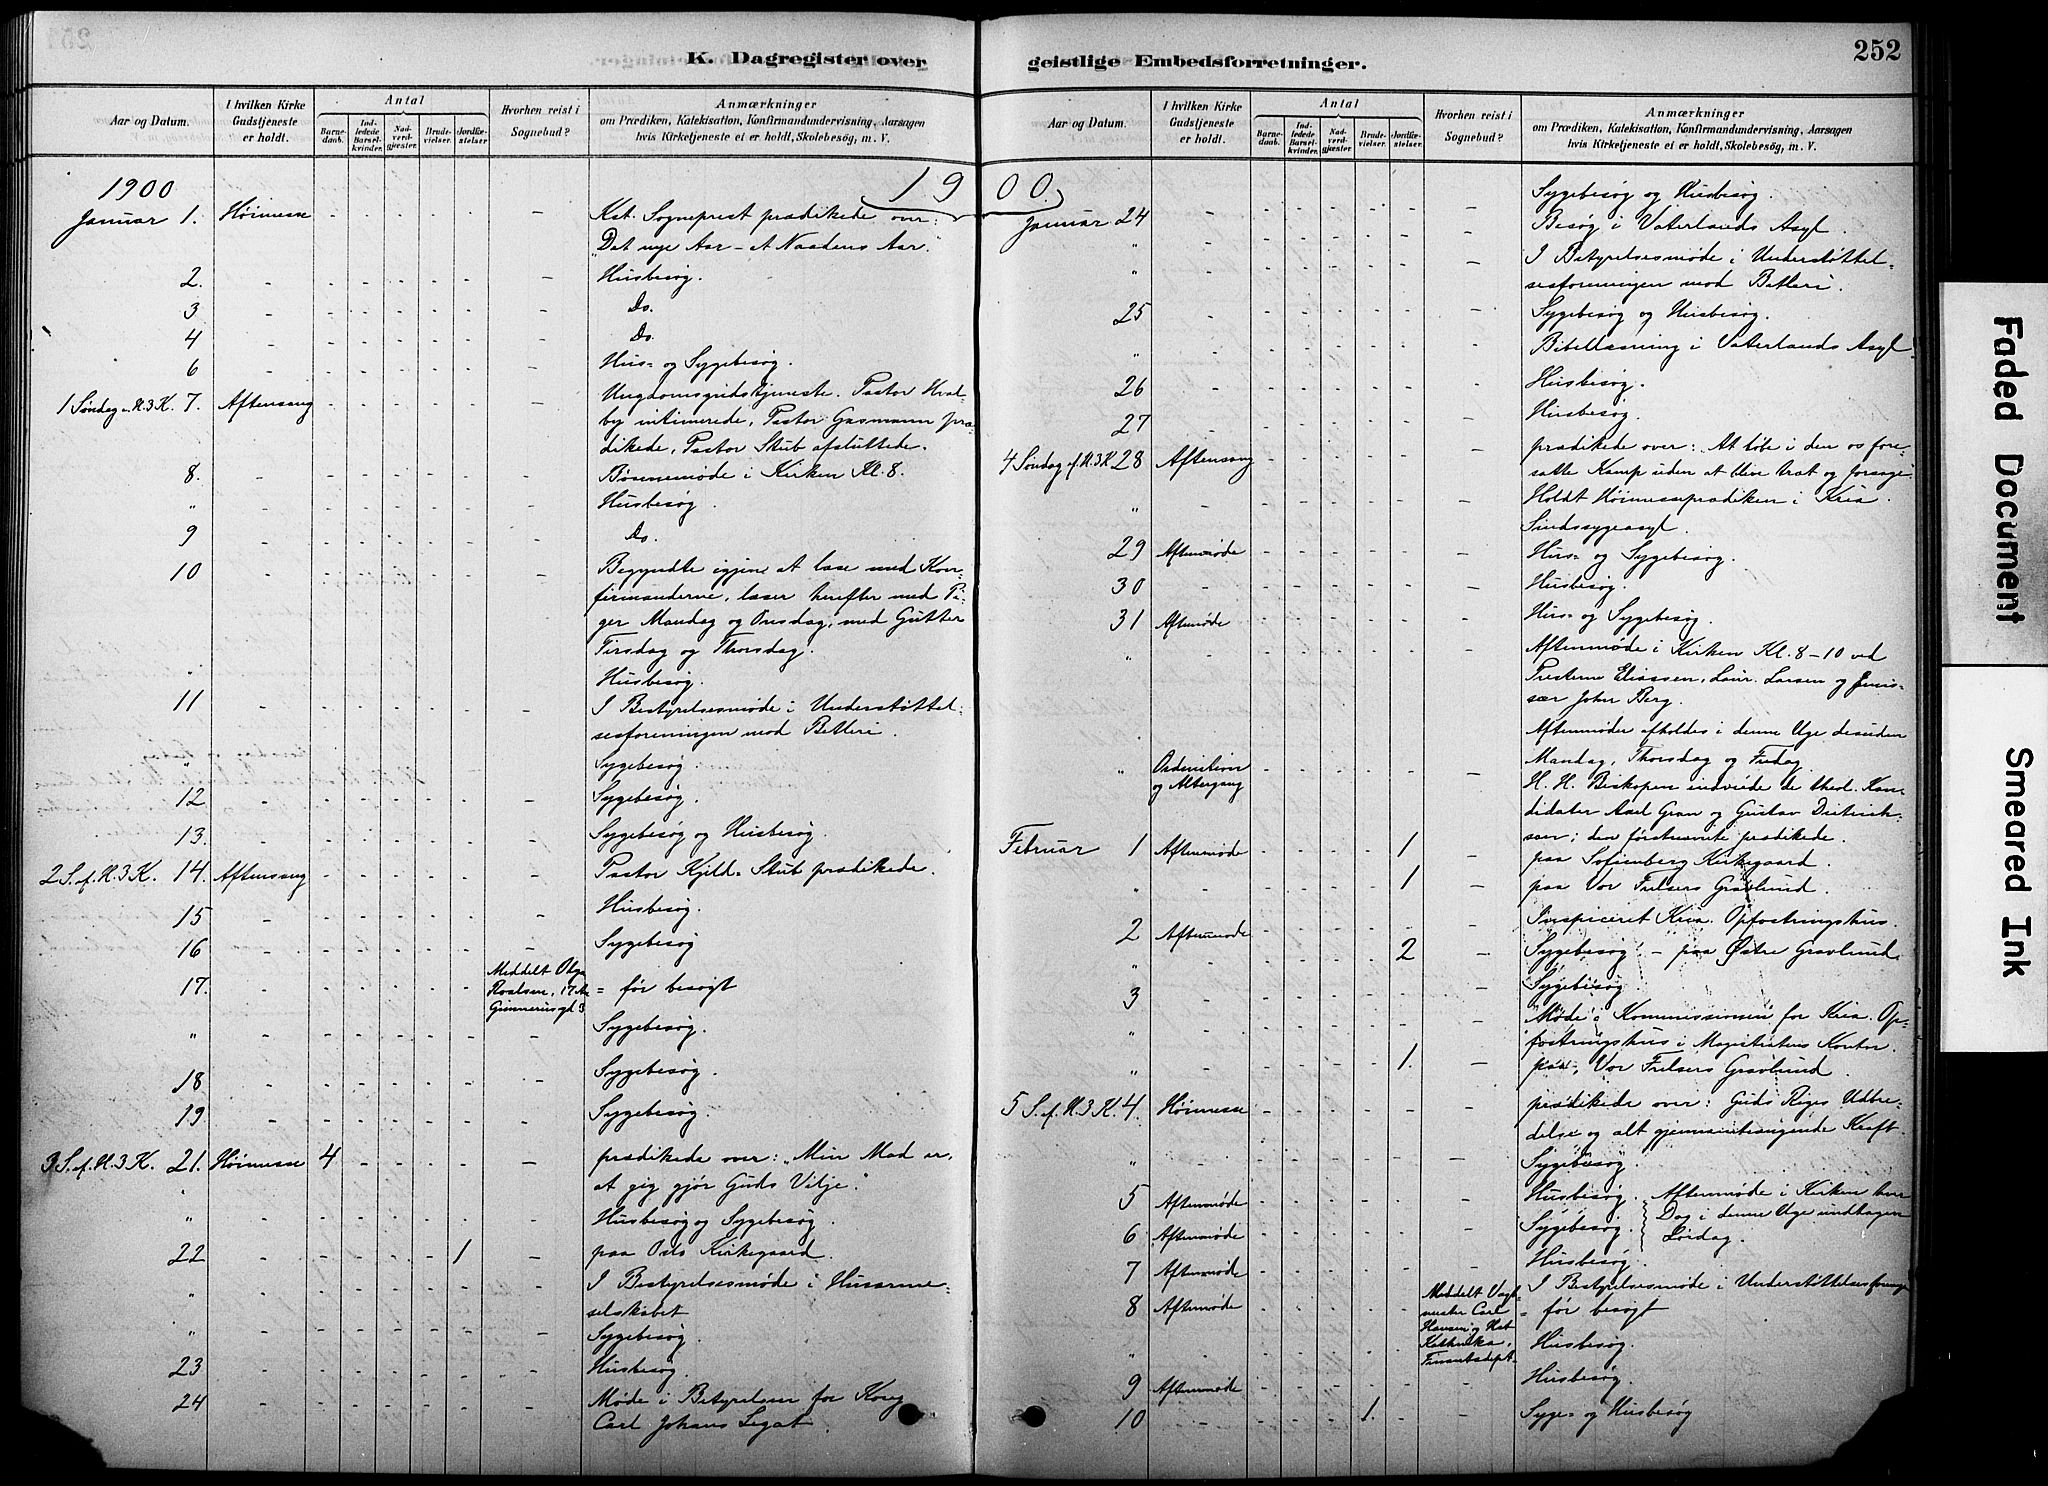 K. Dagregister over geistlige Embedsforretninger.
252
Aar og Datum.
I hvilken Kirke Gudstjeneste er holdt.
Antal
Barnedaab.
Indledede Barselkvinder.
Nadverdgjæster.
Brudevielser.
Jordfæstelser.
Hvorhen reist i Sognebud?
Anmærkninger
om Prædiken, Katekisation, Konfirmandundervisning, Aarsagen
hvis Kirketjeneste ei er holdt, Skolebesøg, m. V.
1900
Januar 1. Høimesse - - - - - - Kst. Sogneprest prædikede over:
"Det nye Aar - et Naadens Aar."
2. - Husbesøg.
3 - Do.
4 - Do.
6 - Hus- og Sygebesøg.
1 Søndag e. H.3 K. 7. Aftensang Ungdomsgudstjeneste. Pastor Hval-
by intimerede, Pastor Gasmann præ-
dikede, Pastor Stub afsluttede.
8. - Bønnemøde i Kirken Kl. 8.
" - Husbesøg.
9 - Do.
10 - Begyndte igjen at læse med Kon-
firmanderne, læser herefter med Pi-
ger Mandag og Onsdag, med Gutter
Tirsdag og Thorsdag.
" Husbesøg.
11 - I Bestyrelsesmøde i Understøttel-
sesforeningen mod Betleri.
" - Sygebesøg.
12 - Sygebesøg.
13. - Sygebesøg og Husbesøg.
2 S. e. H. 3 K. 14. Aftensang Pastor Kjeld Stub prædikede.
15 - Husbesøg.
16 - Sygebesøg
17. - Meddelt Olga
Roalsen, 17 Aar
Gunnerusgd 3 = før besøgt
" - Sygebesøg.
18 - Sygebesøg.
19. - Sygebesøg.
3 S. e. H. 3 K. 21. Høimesse 4 prædikede over: "Min Mad er,
" at jeg gjør Guds Vilje."
" - Husbesøg og Sygebesøg.
22 - 1 - paa Oslo Kirkegaard.
" - I Bestyrelsesmøde i Husarme-
selskabet
" - Sygebesøg.
23 - Husbesøg
24 - Møde i Bestyrelsen for Kong
Carl Johans Legat.
Aar og Datum.
I hvilken Kirke Gudstjeneste er holdt.
Antal
Barnedaab.
Indledede Barselkvinder.
Nadverdgjæster.
Brudevielser.
Jordfæstelser.
Hvorhen reist i Sognebud?
Anmærkninger
om Prædiken, Katekisation, Konfirmandundervisning, Aarsagen
hvis Kirketjeneste ei er holdt, Skolebesøg, m. V.
1900.
Januar 24 - Sygebesøg og Husbesøg.
" - Besøg i Vaterlands Asyl.
" - I Bestyrelsesmøde i Understøttel-
sesforeningen mod Betleri.
25 - Sygebesøg og Husbesøg.
" - Bibellæsning i Vaterlands Asyl
26 - Husbesøg.
27 - Husbesøg.
4 Søndag e. H.3 K. 28 Aftensang prædikede over: At løbe i den os fore-
satte Kamp uden at blive træt og forsage.
" - Holdt Høimesseprædiken i Kria
Sindssygeasyl.
29 Aftenmøde Hus- og Sygebesøg.
30 - Husbesøg.
31 Aftenmøde Hus- og Sygebesøg.
" - Aftenmøde i Kirken Kl. 8-10 ved
Presterne Eliassen, Laur. Larsen og Emis-
sær John Berg.
Aftenmøder afholdes i denne Uge desuden
Mandag, Thorsdag og Fredag.
" Ordination
og Altergang H. H. Biskopen indviede de theol. Kan-
didater Axel Gran og Gustav Dietrich-
son; den førstnævnte prædikede.
Februar 1 Aftenmøde 1 paa Sofienberg Kirkegaard.
" - 1 paa Vor Frelsers Gravlund.
2 Aftenmøde Inspiceret Kria. Opfostringshus.
" - 2 Sygebesøg - paa Østre Gravlund.
3 - Sygebesøg
" - Møde i Kommissionen for Kria. Op-
fostringshus i Magistratens Kontor.
" - 1. paa Vor Frelsers Gravlund.
5 S. e. H. 3 K. 4. Høimesse prædikede over: Guds Riges Udbre-
delse og alt gjennemtrængende Kraft.
" - Sygebesøg.
5 Aftenmøde Husbesøg. Aftenmøde i Kirken hver
6 Aftenmøde Sygebesøg. Dag i denne Uge undtagen
Lørdag.
7 Aftenmøde Husbesøg.
8 Aftenmøde I Bestyrelsesmøde i Understøttelsesforeng
Meddelt Vagt-
mester Carl
Hansen og Hst
Kathinka,
Finantsdept. = før besøgt
" Husbesøg.
9 Aftenmøde Husbesøg.
10 - 1. - Syge- og Husbesøg
Faded Document
Smeared Ink